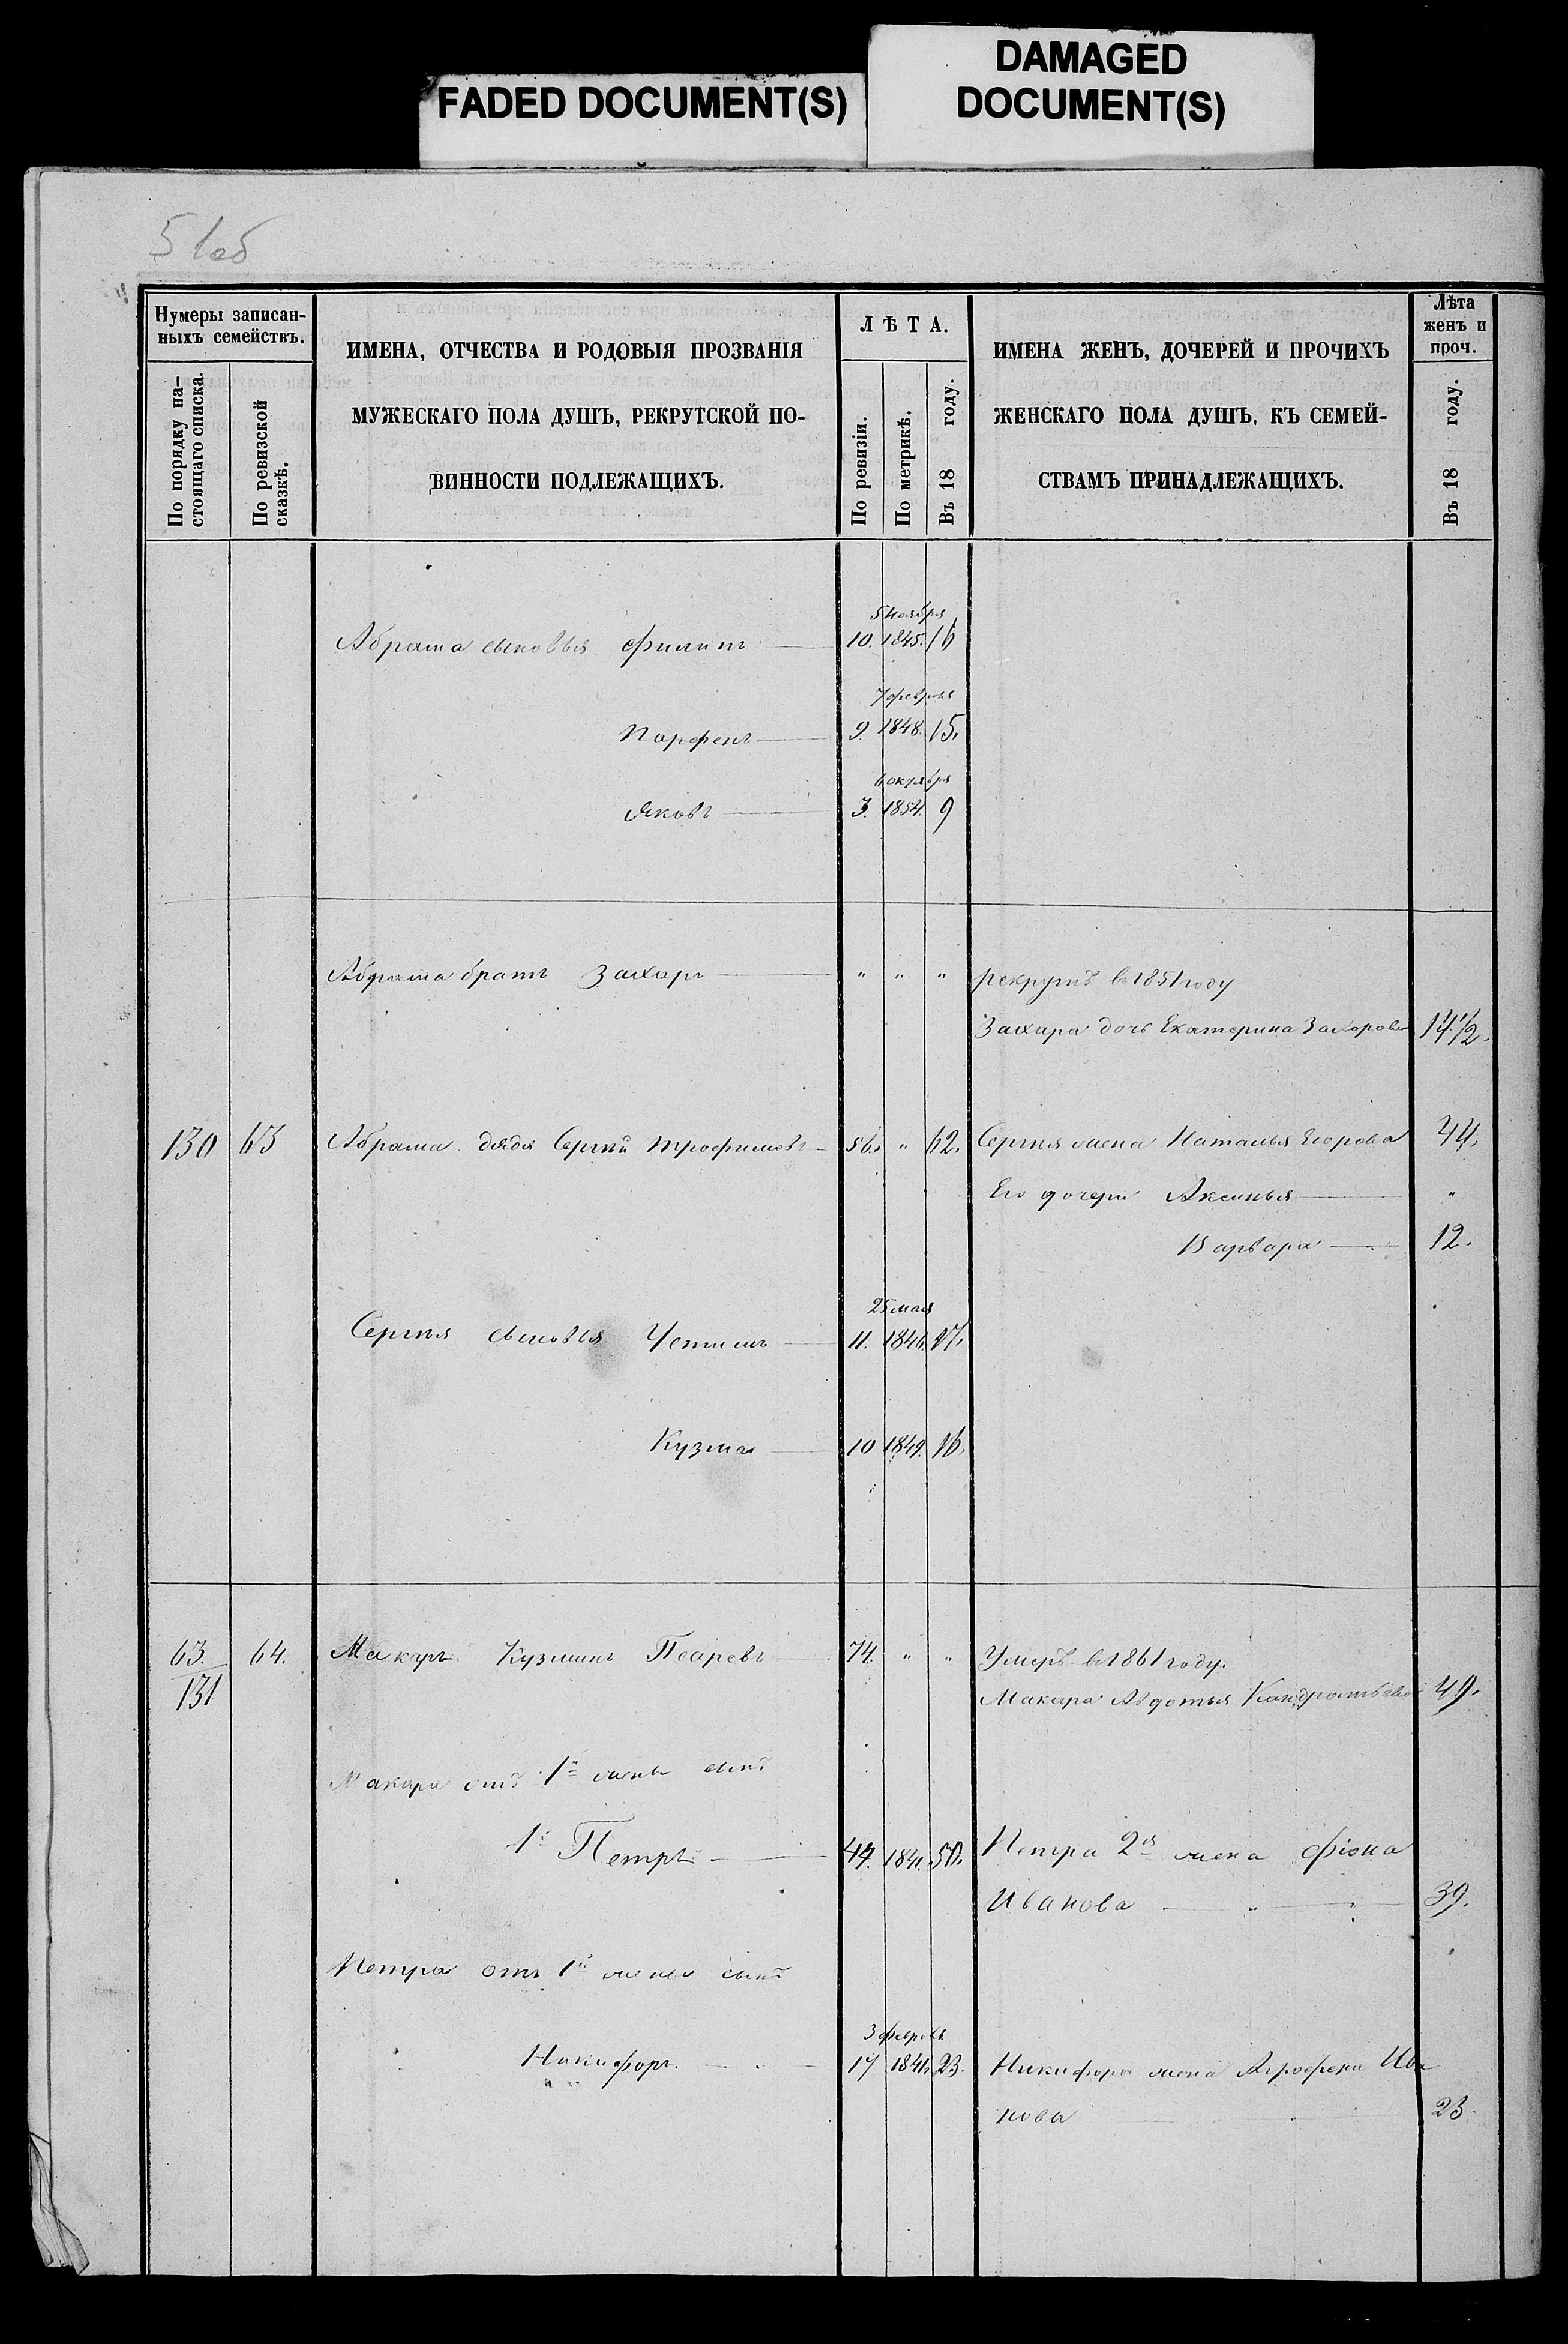 FADED DOCUMENT(S)
DAMAGED
DOCUMENT(S)
51об
Нумеры записан-
ныхъ семействъ.
По порядку на-
стоящаго списка.
По ревизской
сказкѣ.
ИМЕНА, ОТЧЕСТВА И РОДОВЫЯ ПРОЗВАНІЯ
МУЖЕСКАГО ПОЛА ДУШЪ, РЕКРУТСКОЙ ПО-
ВИННОСТИ ПОДЛЕЖАЩИХЪ.
ЛѢТА.
По ревизіи.
По метрикѣ.
Въ 18 году.
ИМЕНА ЖЕНЪ, ДОЧЕРЕЙ И ПРОЧИХЪ
ЖЕНСКАГО ПОЛА ДУШЪ, КЪ СЕМЕЙ-
СТВАМЪ ПРИНАДЛЕЖАЩИХЪ.
Лѣта
женъ и
проч.
Въ 18 году.
5 ноября
Абрама сыновья Филипъ 10. 1845. 16
7 февраля
Парфенъ 9. 1848. 15.
6 октября
Яковъ 3. 1854. 9
Абрама братъ Захаръ " " " рекрутъ в 1851 году
Захара дочь Екатерина Захарова 14 1/2.
130 63 Абрама дядя Сергѣй Трофимовъ 56. " 62. Сергѣя жена Наталья Егорова 44.
Его дочери Аксинья "
Варвара 12.
25 мая
Сергѣя сыновья 11. 1846. 17.
Кузма 10 1849. 16.
63. 64. Макаръ Кузминъ Псаревъ 74. " " Умеръ в 1861 году.
131 Макара Авдотья Кондратьева 49.
Макара отъ 1й жены сынъ
1й Петръ 44. 1841. 50. Петра 2я жена Фіона
Иванова " 39.
Петра отъ 1й жены сынъ
3 февраля
Никифоръ 17 1841. 23. Никифора жена Агрофена Ива
нова 23.